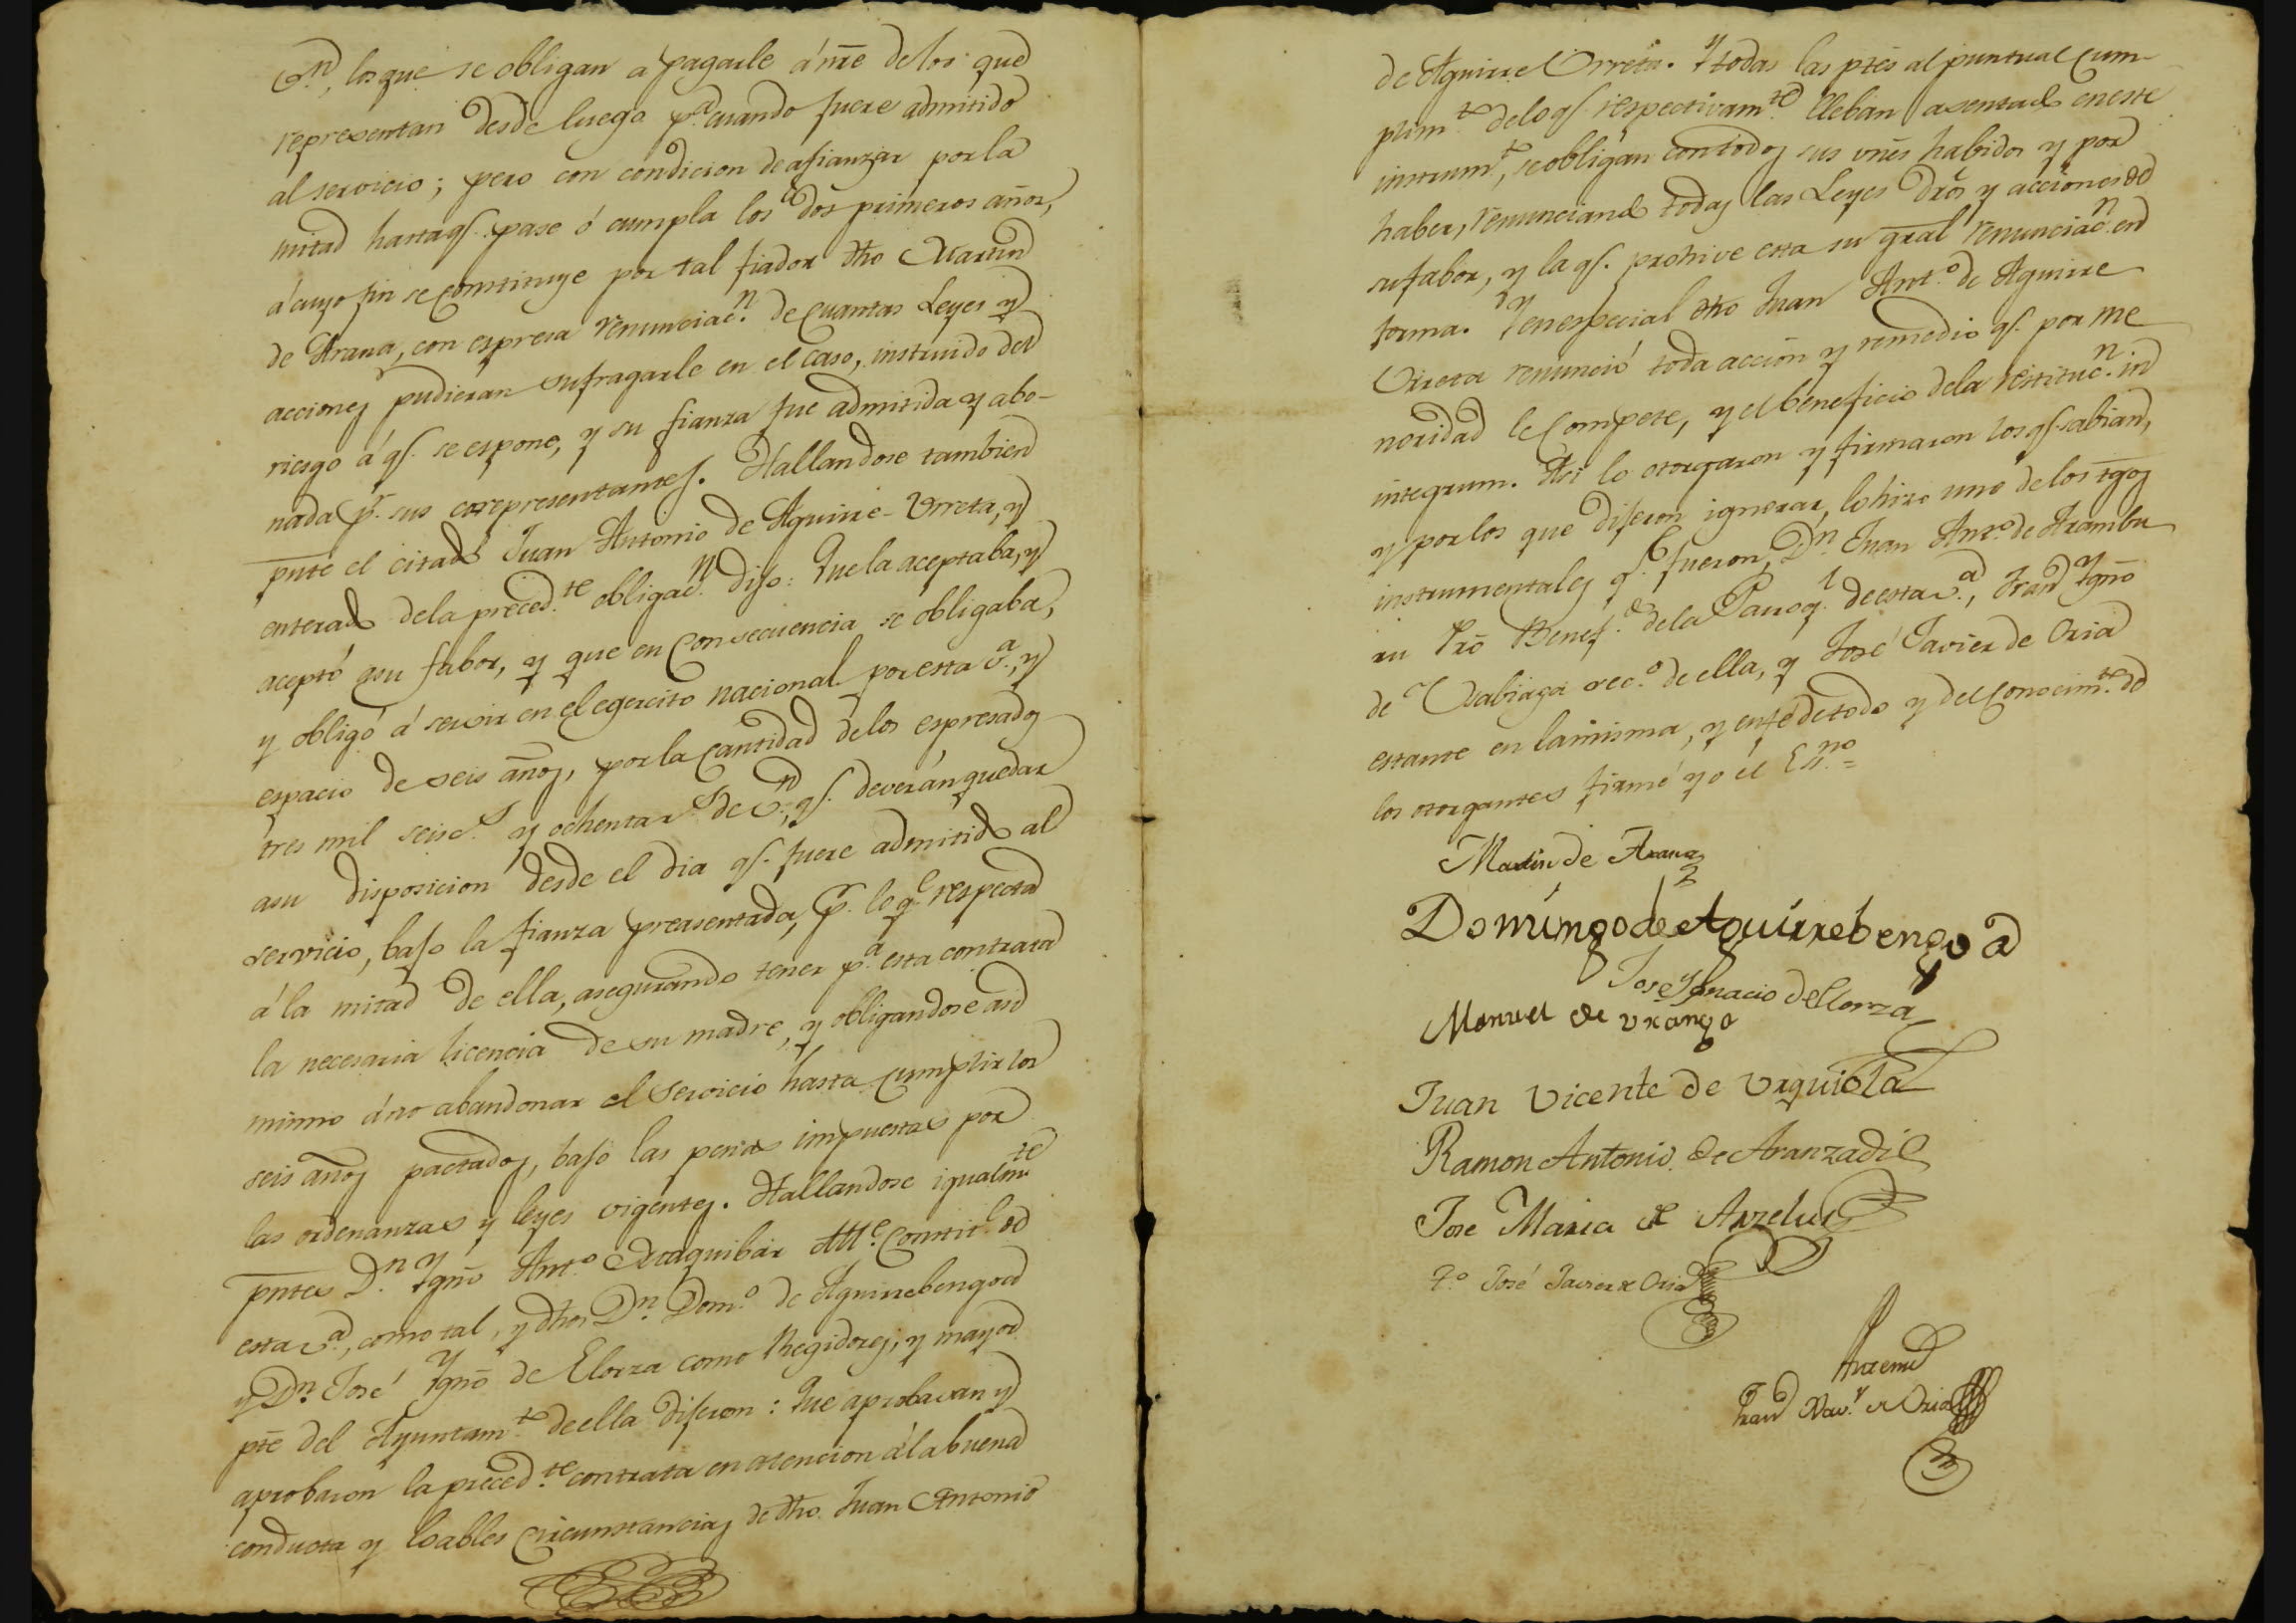 Vn, los que se obligan a pagarle á nre de los que
representan desde luego pa cuando fuere admitido
al servicio; pero con condicion de afianzar por la
mitad hasta q. pase ó cumpla los dos primeros años,
á cuyo fin se constituye por tal fiador dho Martin
de Arana, con espresa renunciacn. de cuantas Leyes y
acciones pudieran sufragarle en el caso, instruido del
riesgo á q. se espone, y su fianza fue admitida y abo-
nada pr. sus corepresentantes. Hallandose tambien
pnte el citado Juan Antonio de Aguirre-Urreta, y
enterado dela preced.te obligacn. dijo: Que la aceptaba, y
aceptó asu fabor, y que en consecuencia se obligaba,
y obligó á servir en el egercito nacional por esta Va., y
espacio de seis años, por la cantidad delos espresados
tres mil seisc.s y ochenta rs de Vn, q. deverán quedar
asu disposicion desde el dia q. fuere admitido al
servicio, bajo la fianza preasentada, pr. lo qe respecta
á la mitad de ella, asegurando tener pa. esta contrata
la necesaria licencia de su madre, y obligandose asi
mismo á no abandonar el servicio hasta cumplir los
seis años pactados, bajo las penas impuestas por
las ordenanzas y leyes vigentes. Hallandose igualmte
pntes Dn. Ygno Anto. Araquibar Alle. Constitl. de
esta Va., como tal, y dhos Dn. Domo. de Aguirrebengoa
y Dn. José Ygno de Elorza como Regidores, y mayor
pte del Ayuntamto. de ella dijeron: Que aprobavan y
aprobaron la preced.te contrata en atencion á la buena
conducta y loables circunstancias de dho Juan Antonio
de Aguirre Urreta. Y todas las ptes al puntual cum-
plimto. delo q. respectivamte. lleban asentado en este
instrumto, se obligan con todos sus vnes habidos y por
haber, renunciando todas las Leyes dros y acciones de
su fabor, y la q. prohive esta su gral renunciacn. en
forma. Y en especial dho Juan Anto. de Aguirre
Urreta renunció toda acción y remedio q. por me
noridad le compete, y el beneficio dela restitucn. in
integrum. Asi lo otorgaron y firmaron los q. sabian,
y por los que dijeron ignorar, lo hizo uno de los tgos
instrumentales q. fueron, Dn. Juan Anto. de Arambu
ru Pro Benef.do dela Parroql. de esta Va., Fran Ygno
de Usabiaga veco. de ella, y José Javier de Oria
estante en la misma, y en fé de todo y del conocimto. de
los otorgantes firmé yo el Esno.=
Martin de Arana
Domíngo de Aguírrebengoa
Jose Ygnacio de Elorza
Manuel de Uranga
Juan Vicente de Urquiola
Ramon Antonio de Aranzadi
Jose Maria de Arzelus
To. José Javier de Oria
Antemi
Fran Xavr. de Oria